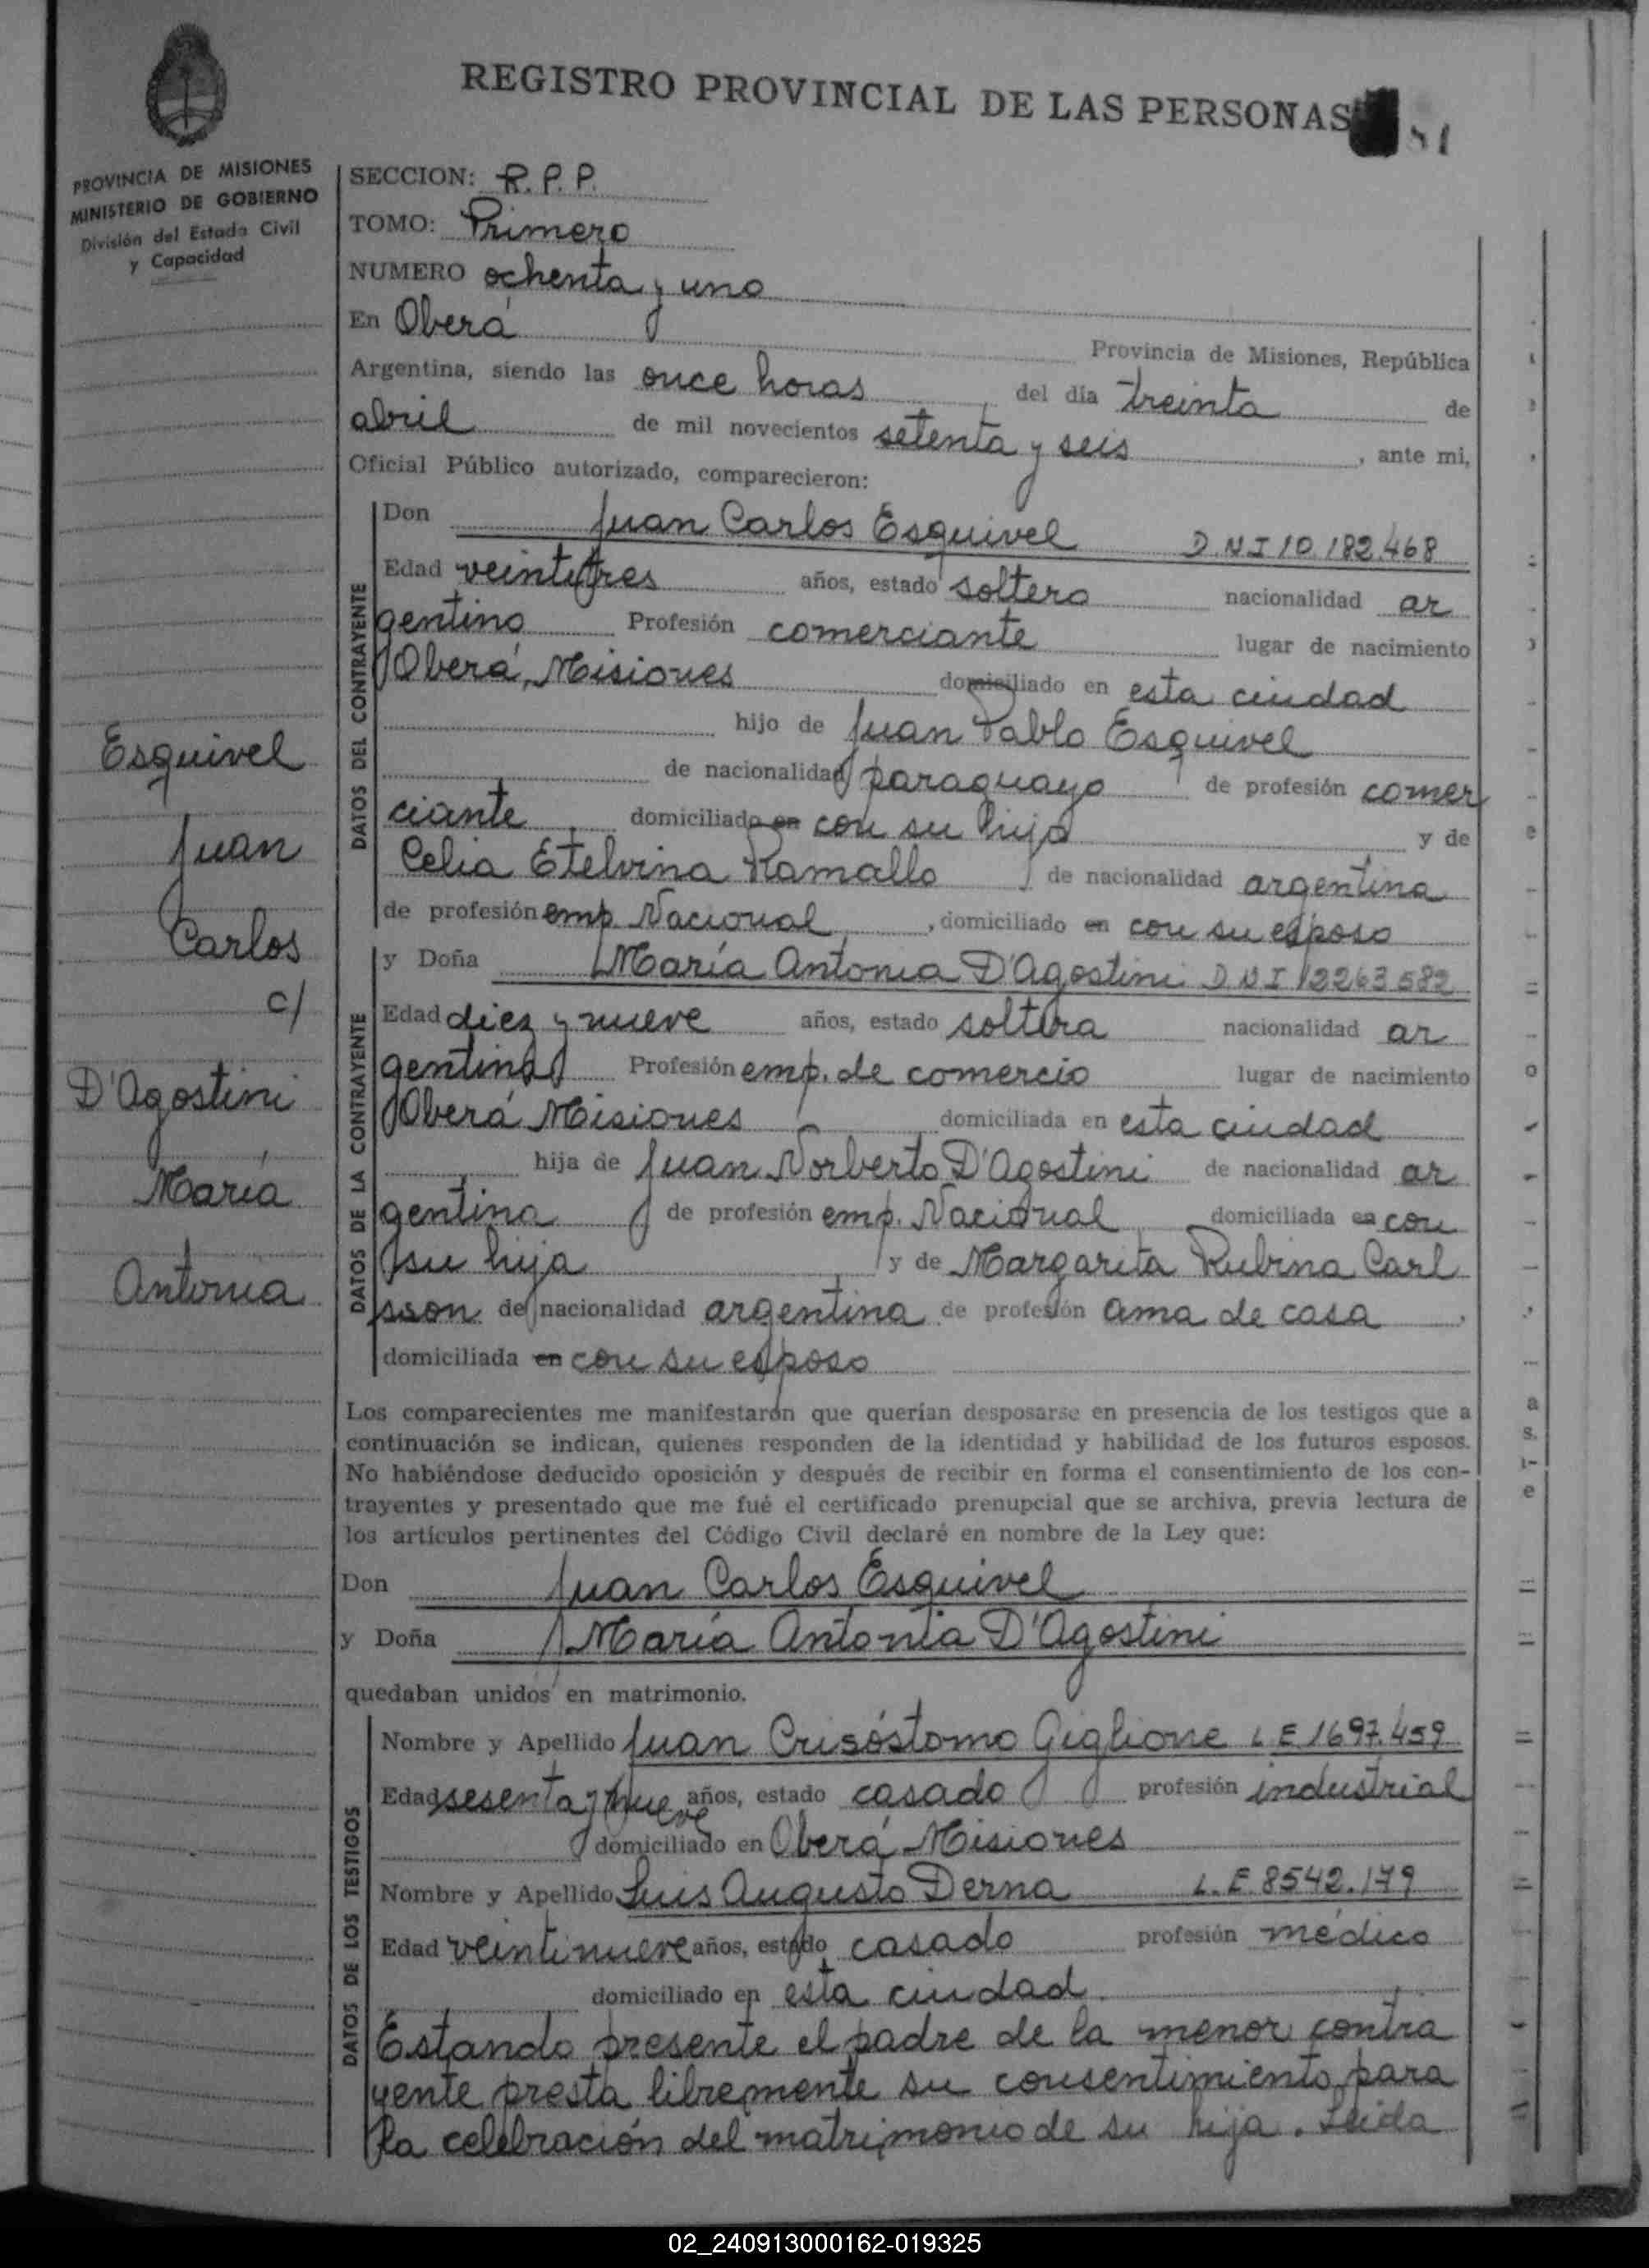 REGISTRO PROVINCIAL DE LAS PERSONAS 81
PROVINCIA DE MISIONES
MINISTERIO DE GOBIERNO
División del Estado Civil
y Capacidad
SECCION: R.P.P.
TOMO: Primero
NUMERO ochenta y uno
En Oberá Provincia de Misiones, República
Argentina, siendo las once horas, del día treinta de
abril de mil novecientos setenta y seis, ante mi,
Oficial Público autorizado, comparecieron:
DATOS DEL CONTRAYENTE
Don Juan Carlos Esquivel D.N.I 10.182.468
Edad veintitres años, estado soltero nacionalidad ar
gentino Profesión comerciante lugar de nacimiento
Oberá, Misiones domiciliado en esta ciudad
hijo de Juan Pablo Esquivel
de nacionalidad paraguayo de profesión comer
ciante domiciliado en con su hijo y de
Celia Etelvina Ramallo de nacionalidad argentina
de profesión emp. Nacional, domiciliado en con su esposo
DATOS DE LA CONTRAYENTE
y Doña María Antonia D'Agostini D N I 12263582
Edad diez y nueve años, estado soltera nacionalidad ar
gentina Profesión emp. de comercio lugar de nacimiento
Oberá Misiones domiciliada en esta ciudad
hija de Juan Norberto D'Agostini de nacionalidad ar
gentino de profesión emp. Nacional domiciliada en con
su hija y de Margarita Rubina Carl
sson de nacionalidad argentina de profesión ama de casa,
domiciliada en con su esposo
Esquivel
Juan
Carlos
c/
D'Agostini
María
Antonia
Los comparecientes me manifestarón que querían desposarse en presencia de los testigos que a
continuación se indican, quienes responden de la identidad y habilidad de los futuros esposos.
No habiéndose deducido oposición y después de recibir en forma el consentimiento de los con-
trayentes y presentado que me fué el certificado prenupcial que se archiva, previa lectura de
los artículos pertinentes del Código Civil declaré en nombre de la Ley que:
Don Juan Carlos Esquivel
y Doña María Antonia D'Agostini
quedaban unidos en matrimonio.
DATOS DE LOS TESTIGOS
Nombre y Apellido Juan Crisóstomo Giglione L E 1697.459
Edad sesenta y nueve años, estado casado profesión industrial
domiciliado en Oberá Misiones
Nombre y Apellido Luis Augusto Derna L.E. 8542.179
Edad veintinueve años, estado casado profesión médico
domiciliado en esta ciudad.
Estando presente el padre de la menor contra
yente presta libremente su consentimiento para
la celebración del matrimonio de su hija. Leida
02_240913000162-019325